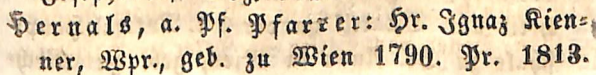 Hernals, a. Pf. Pfarrer: Hr. Ignaz Kien=
ner, Wpr., geb. zu Wien 1790. Pr. 1813.